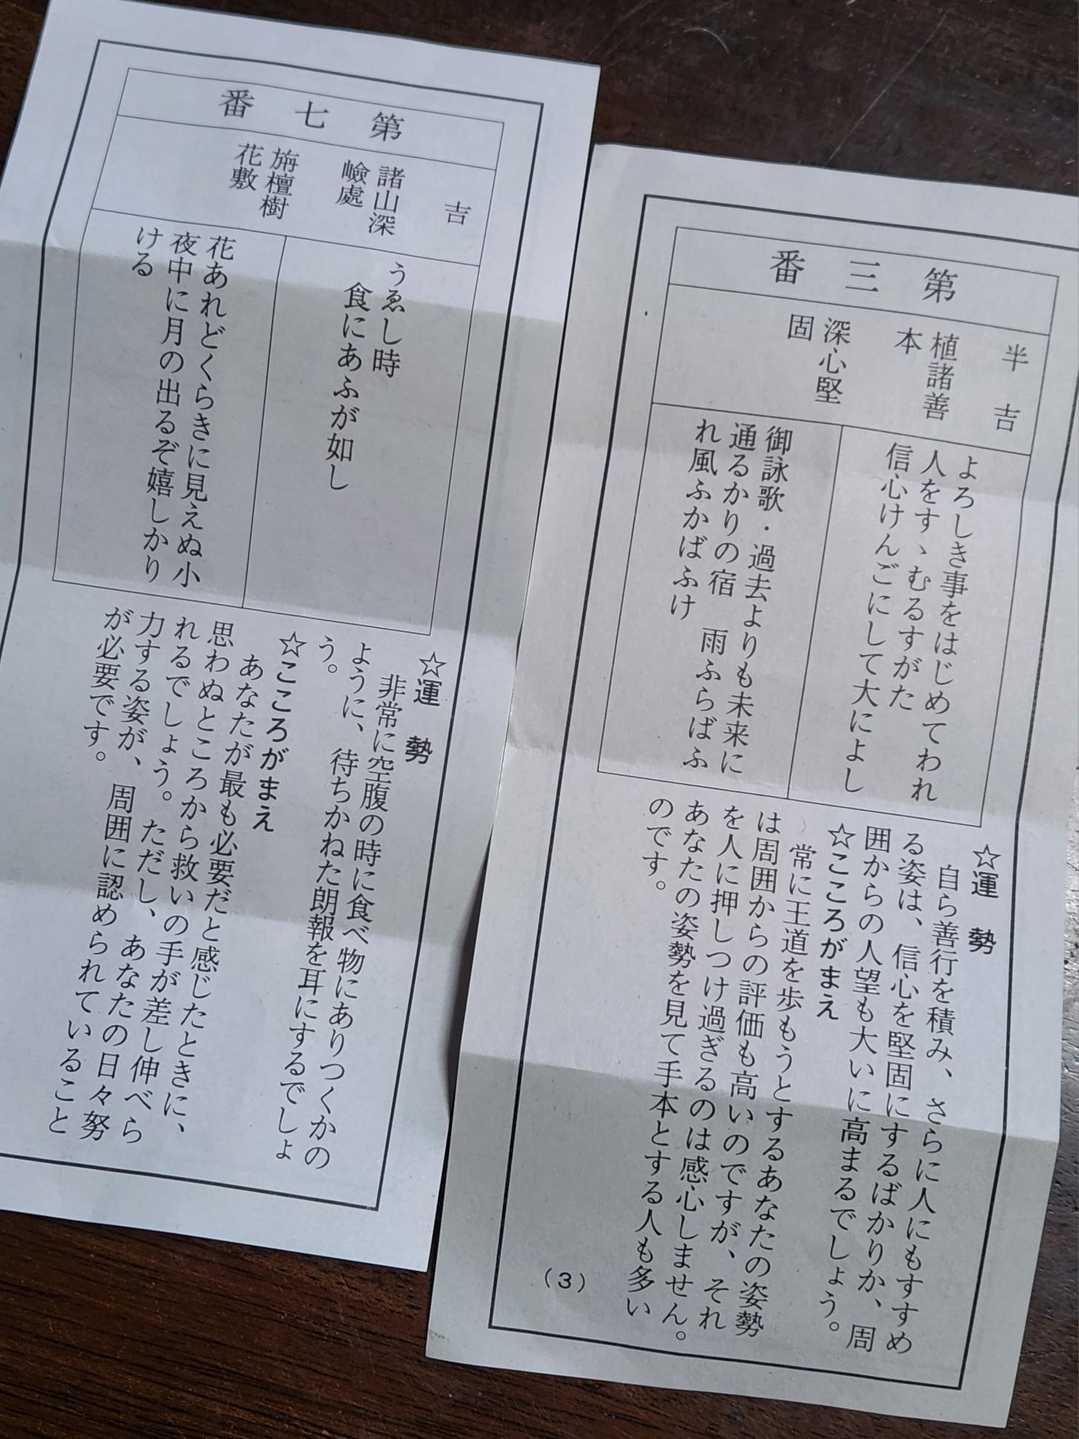 第三番
半吉
植諸善
本
深心堅
固
よろしき事をはじめてわれ
人をすゝむるすがた
信心けんごにして大によし
御詠歌・過去よりも未来に
通るかりの宿　雨ふらばふ
れ風ふかばふけ
☆運　勢
自ら善行を積み、さらに人にもすすめ
る姿は、信心を堅固にするばかりか、周
囲からの人望も大いに高まるでしょう。
☆こころがまえ
常に王道を歩もうとするあなたの姿勢
は周囲からの評価も高いのですが、それ
を人に押しつけ過ぎるのは感心しません。
あなたの姿勢を見て手本とする人も多い
のです。
(3)
第七番
吉
諸山深
嶮處
旃檀樹
花敷
うゑし時
食にあふが如し
花あれどくらきに見えぬ小
夜中に月の出るぞ嬉しかり
ける
☆運　勢
非常に空腹の時に食べ物にありつくかの
ように、待ちかねた朗報を耳にするでしょ
う。
☆こころがまえ
あなたが最も必要だと感じたときに、
思わぬところから救いの手が差し伸べら
れるでしょう。ただし、あなたの日々努
力する姿が、周囲に認められていること
が必要です。